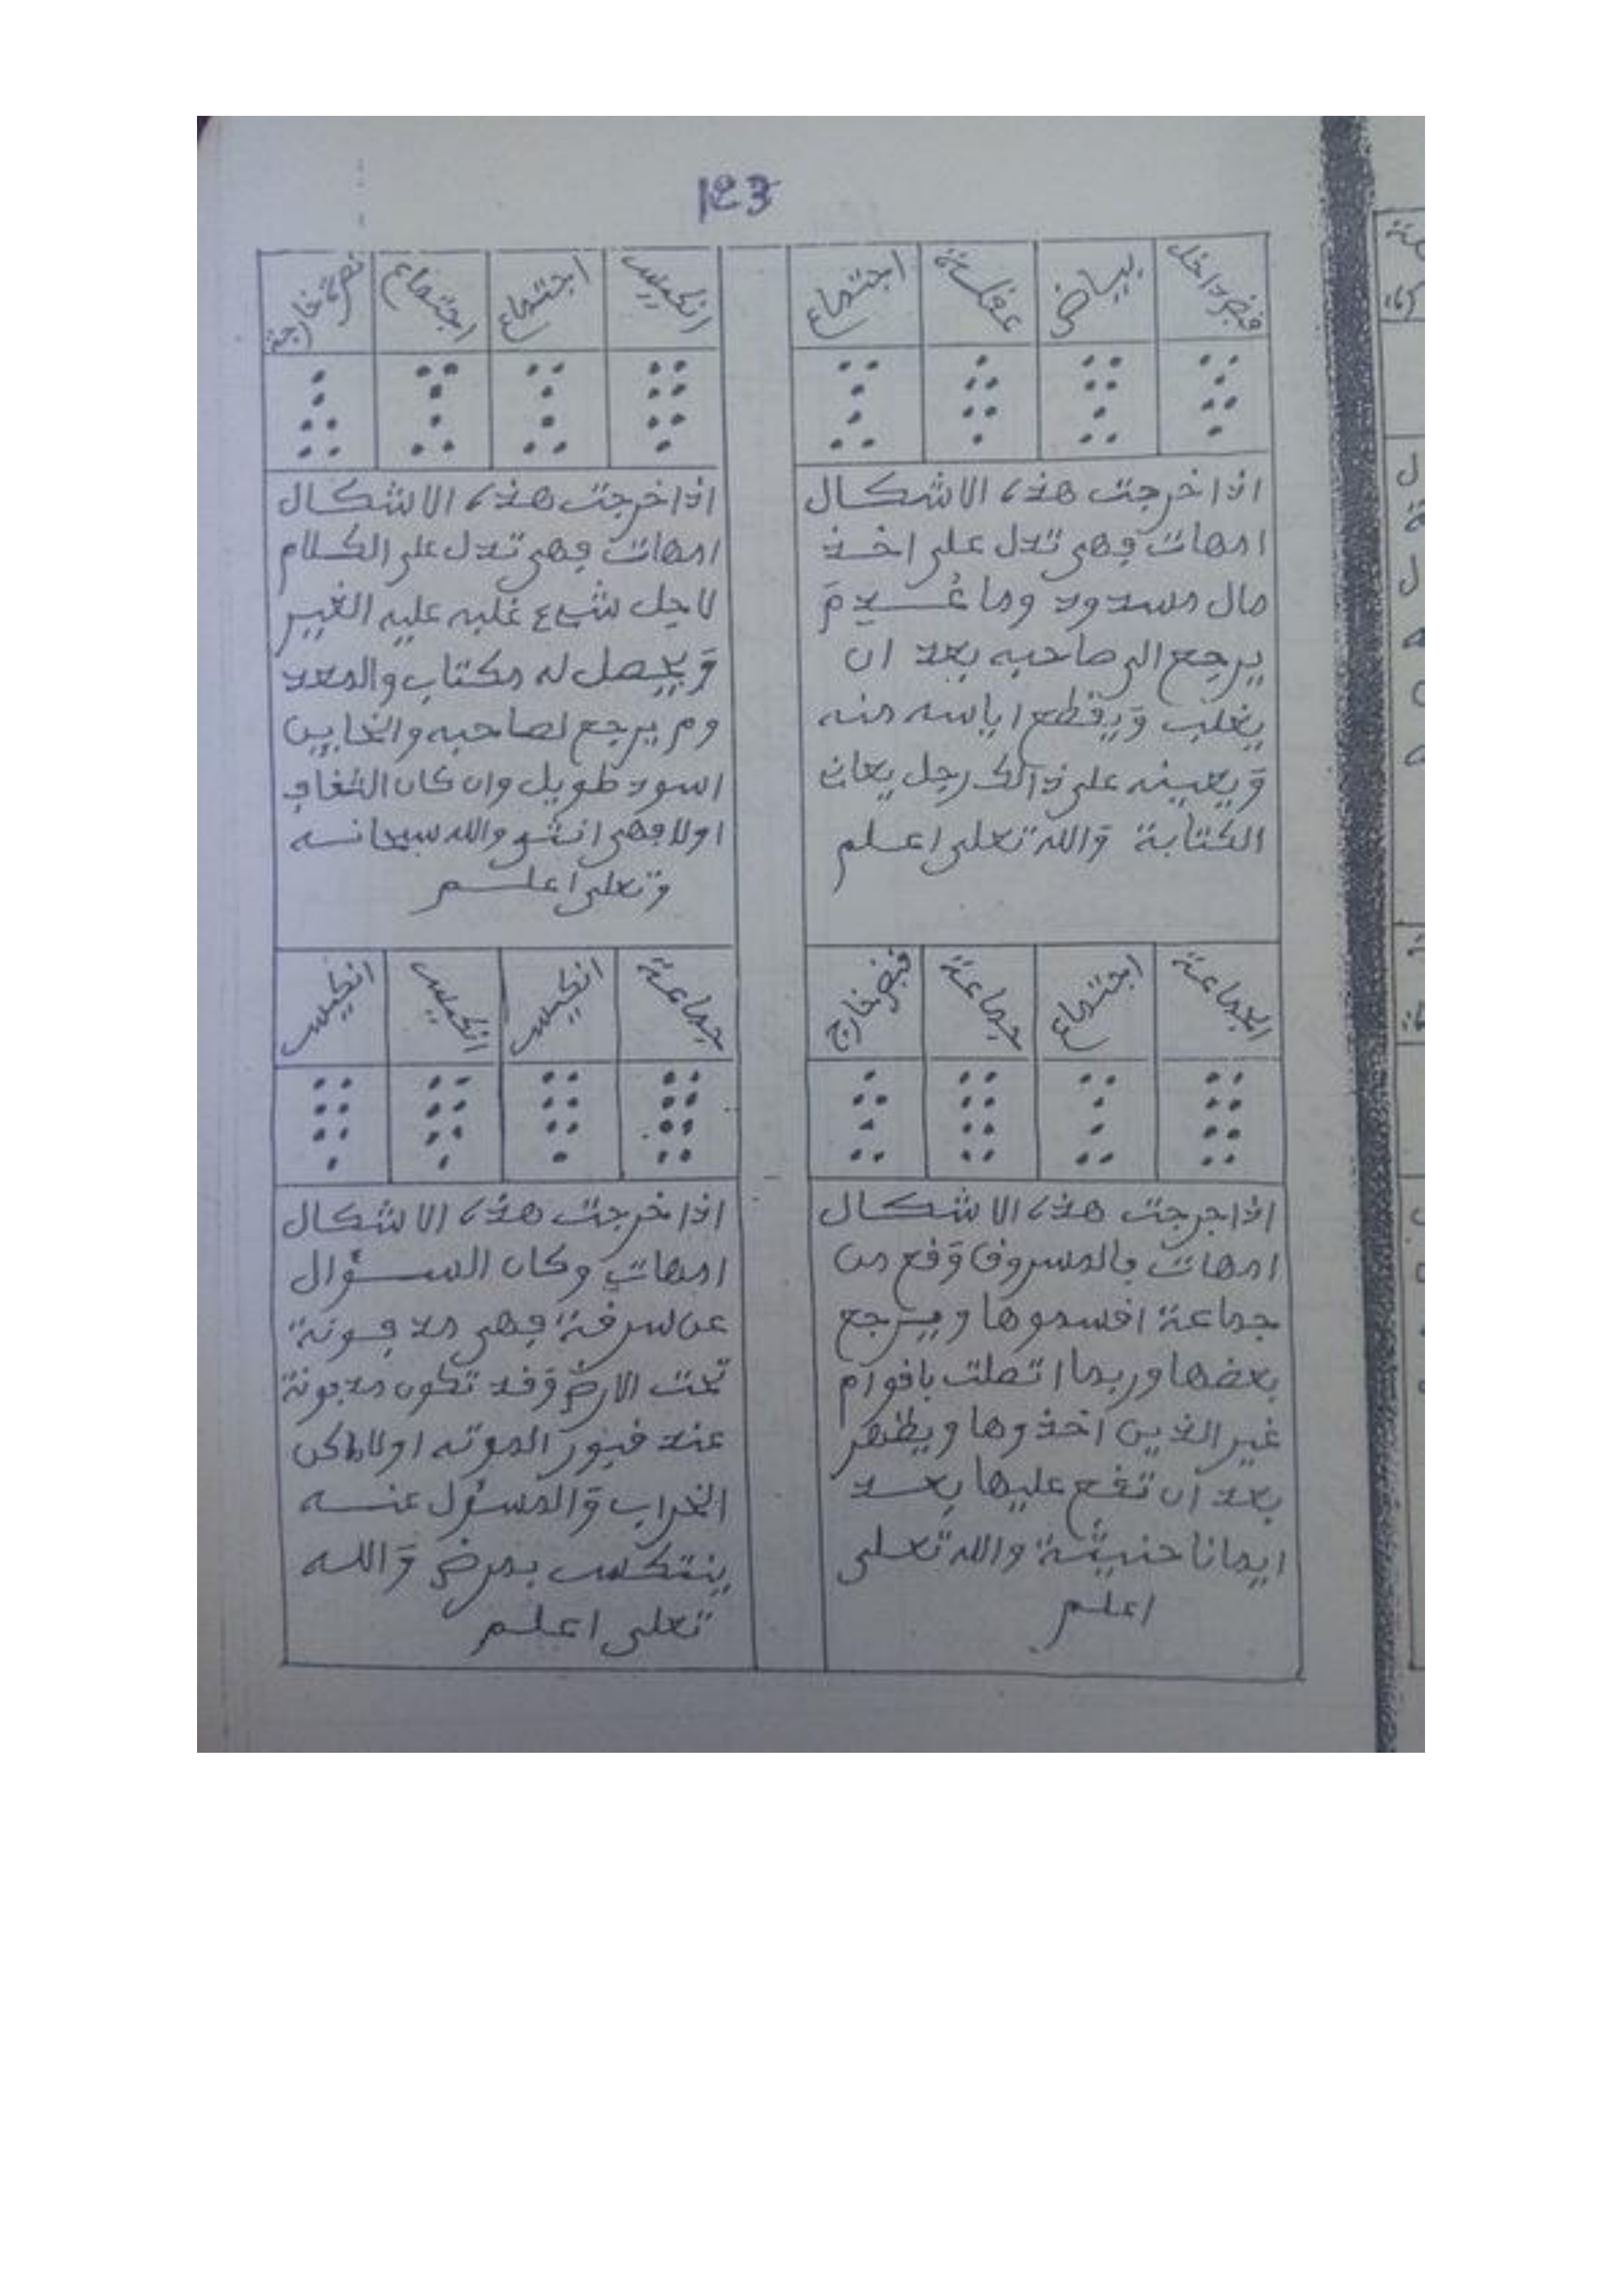 123
قبض داخل
بياض
عقلة
اجتماع
اذا خرجت هذه الاشكال
امهات فهي تدل على اخذ
مال مسدود وما عُدِمَ
يرجع الى صاحبه بعد ان
يغلب وَيقطع اياسه منه
وَيعينه على ذالك رجل يعان
الكتابة وَالله تعلى اعلم
انكيس
اجتماع
اجتماع
نصرة خارجة
اذا خرجت هذه الاشكال
امهات فهي تدل على الكلام
لاجل شيء غلبه عليه الغير
وَيحصل له مكتاب والمعد
وم يرجع لصاحبه والخاين
اسود طويل وان كان الثقاف
اولا فهي انثى والله سبحانه
وتعلى اعلم
الجماعة
اجتماع
جماعة
قبض خارج
اذا جرجت هذه الاشكال
امهات فالمسروق وَقع من
جماعة اقسموها ويرجع
بعضها وربما اتصلت باقوام
غير الذين اخذوها ويظهر
بعد ان تقع عليها بعد
ايمانا حنيثة والله تعلى
اعلم
جماعة
انكيس
انكيس
انكيس
اذا خرجت هذه الاشكال
امهات وكان السؤال
عن سرقة فهي مدفونة
تحت الارض وَقد تكون مدفونة
عند قبور الموته اولاماكن
الخراب وَالمسؤل عنه
ينتكس بمرض وَالله
تعلى اعلم